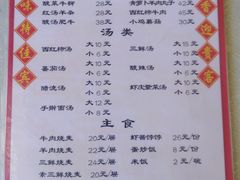 酸菜牛柳 28元 青萝卜羊肉丸子 42元
酸汤羊肉 38元 西红柿牛肉 45元
酸汤肥牛 38元 小鸡蘑菇 30元
汤类
西红柿汤 大10元 小6元 三鲜汤 大10元 小6元
番茄汤 大10元 小6元 酸辣汤 大10元 小6元
疙瘩汤 大12元 小8元 虾皮紫菜汤 大10元 小6元
手擀面汤 大12元 小8元
主食
牛肉烧麦 20元/屉 虾酱饽饽 26元/份
羊肉烧麦 22元/屉 蛋炒饭 8元/份
三鲜烧麦 24元/屉 米饭 2元/碗
素三鲜烧麦 20元/屉
味待佳宾
香迎贵客